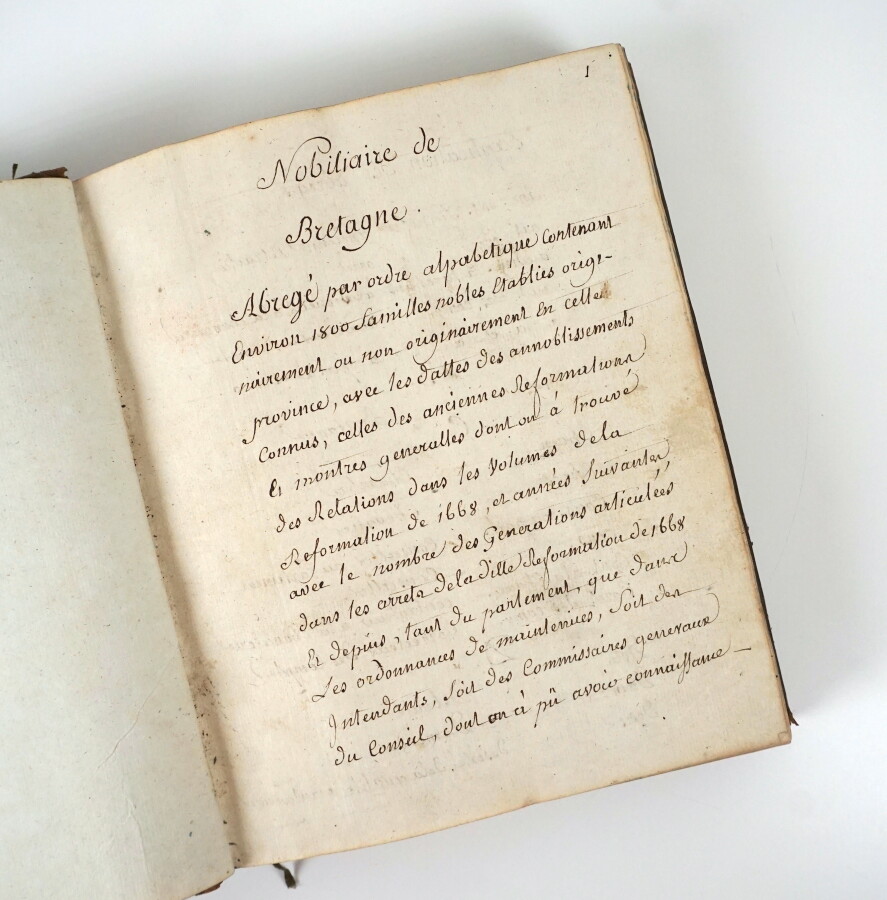 1
Nobiliaire de
Bretagne.
Abregé par ordre alphabetique Contenant
Environ 1800 familles nobles Etablies origi-
nairement ou non originairement En celle
province, avec les dattes des annoblissements
Connus, celles des anciennes Reformations
Et montres generalles dont on à trouvé
des Relations dans les Volumes de la
Reformation de 1668, et années Suivantes
avec le nombre des Generations articulées
dans les arrets de la dille Reformation de 1668
Et depuis, tant du parlement, que dans
Les ordonnances de maintenües, Soit des
Intendants, Soit des Commissaires generaux
du Conseil, dont on à pü avoir connaissance